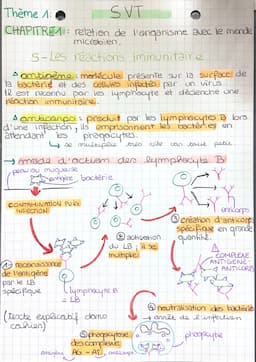 Thème 1: SVT
CHAPITRE 1: relation de l'organisme avec le monde
microbien.
5 - Les réactions immunitaire
antigène: molécule présente sur la surface de
la bactérie et des cellules infectés par un virus.
Il est reconnu par les lymphocyte et déclenche une
réaction immunitaire.
anticorps: produit par les lymphocytes B lors
d'une infection, ils emprisonnent les bactéries en
attendant les phagocytes.
↳ se multiplie très vite
→ mode d'action des lymphocyte B
peau ou muqueuse
antigène, bactérie
CONTAMINATION PUIS
INFECTION
① reconnaissance
de l'antigène
par le LB
spécifique
lymphocyte B
= LB
② activation
du LB, il se
multiplie
anticorps
③ création d'anticorps
spécifique en grande
quantité.
COMPLEXE
ANTIGENE-
ANTICORPS
④ neutralisation des bactérie
→ arrêt de l'infection
(texte explicatif dans
cahier)
⑤ phagocytose
des complexes
AG - AC
phagocyte